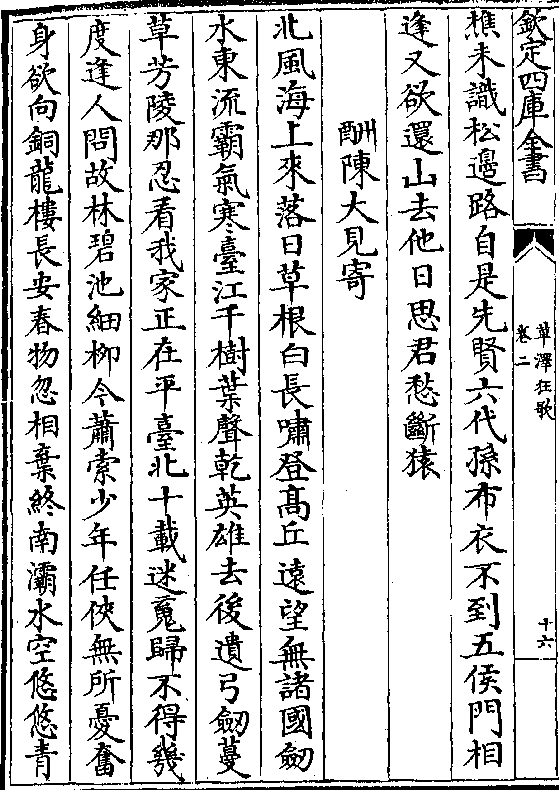 欽定四庫全書
草澤狂歌
卷二
十六
樵未識松邊路自是先賢六代孫布衣不到五侯門相
逢又欲還山去他日思君愁斷猿
酬陳大見寄
北風海上來落日草根白長嘯登高丘遠望無諸國劒
水東流霸氣寒臺江千樹葉聲乾英雄去後遺弓劒蔓
草芳陵那忍看我家正在平臺北十載迷䰟歸不得幾
度逢人問故林碧池細柳今蕭索少年任俠無所憂奮
身欲向銅龍樓長安春物忽相棄終南灞水空悠悠青